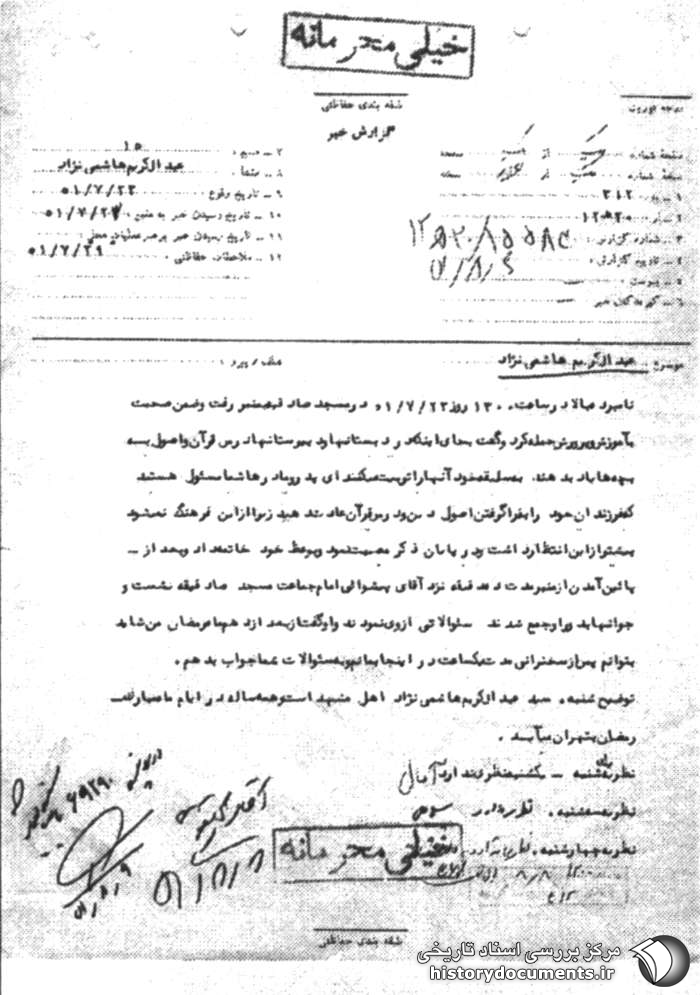 خیلی محرمانه
طبقه بندی حفاظتی
گزارش خبر
صفحه شماره
از
صفحه
نسخه شماره
از
نسخه
۱ ــ به : ۳۱۲
۲ ــ از : ۱۲۵۲۰
۳ ــ شماره گزارش :
۴ ــ تاریخ گزارش : ۵۱/۸/۴
۵ ــ پیوست : ــ
۶ ــ گیرندگان خبر
۷ ــ منبع : ۱۵
۸ ــ منشأ : عبدالکریم هاشمی نژاد
۹ ــ تاریخ وقوع : ۵۱/۷/۲۲
۱۰ ــ تاریخ رسیدن خبر به منبع : ۵۱/۷/۲۲
۱۱ ــ تاریخ رسیدن خبر به رهبر عملیات محل : ۵۱/۷/۲۹
۱۲ ــ ملاحظات حفاظتی :
موضوع : عبدالکریم هاشمی نژاد
عطف / پیرو :
نامبرده بالا در ساعت ۱۳۰۰ روز ۵۱/۷/۲۲ در مسجد صادقیه منبر رفت و ضمن صحبت
بآموزش و پرورش حمله کرد و گفت بجای اینکه در دبستانها و دبیرستانها درس قرآن و اصول به
بچه ها یاد بدهند به سلیقه خود آنها را تربیت میکنند ای پدر و مادرها شما مسئول هستید
که فرزندان خود را بفرا گرفتن اصول دین و درس قرآن عادت دهید زیرا از این فرهنگ نمیشود
بیشتر از این انتظار داشت و در پایان ذکر مصیبت نمود و بوعظ خود خاتمه داد و بعد از ــ
پائین آمدن از منبر مدت ده دقیقه نزد آقای پیشوائی امام جماعت مسجد صادقیه نشست و
جوانها بدور او جمع شدند سئوالاتی از وی نمودند و او گفت از بعد ازدهم ماه رمضان من شاید
بتوانم پس از سخنرانی مدت یکساعت در اینجا بمانم و به سئوالات شما جواب بدهم .
توضیح شنبه ، سید عبدالکریم هاشمی نژاد اهل مشهد است و همه ساله در ایام ماه مبارک
رمضان بتهران میآید .
نظریه شنبه ــ یکشنبه نظری ندارد
نظریه سه شنبه . نظری ندارد
نظریه چهارشنبه . نظری ندارد
خیلی محرمانه
۵۱/۸/۸
طبقه بندی حفاظتی
مرکز بررسی اسناد تاریخی
historydocuments.ir